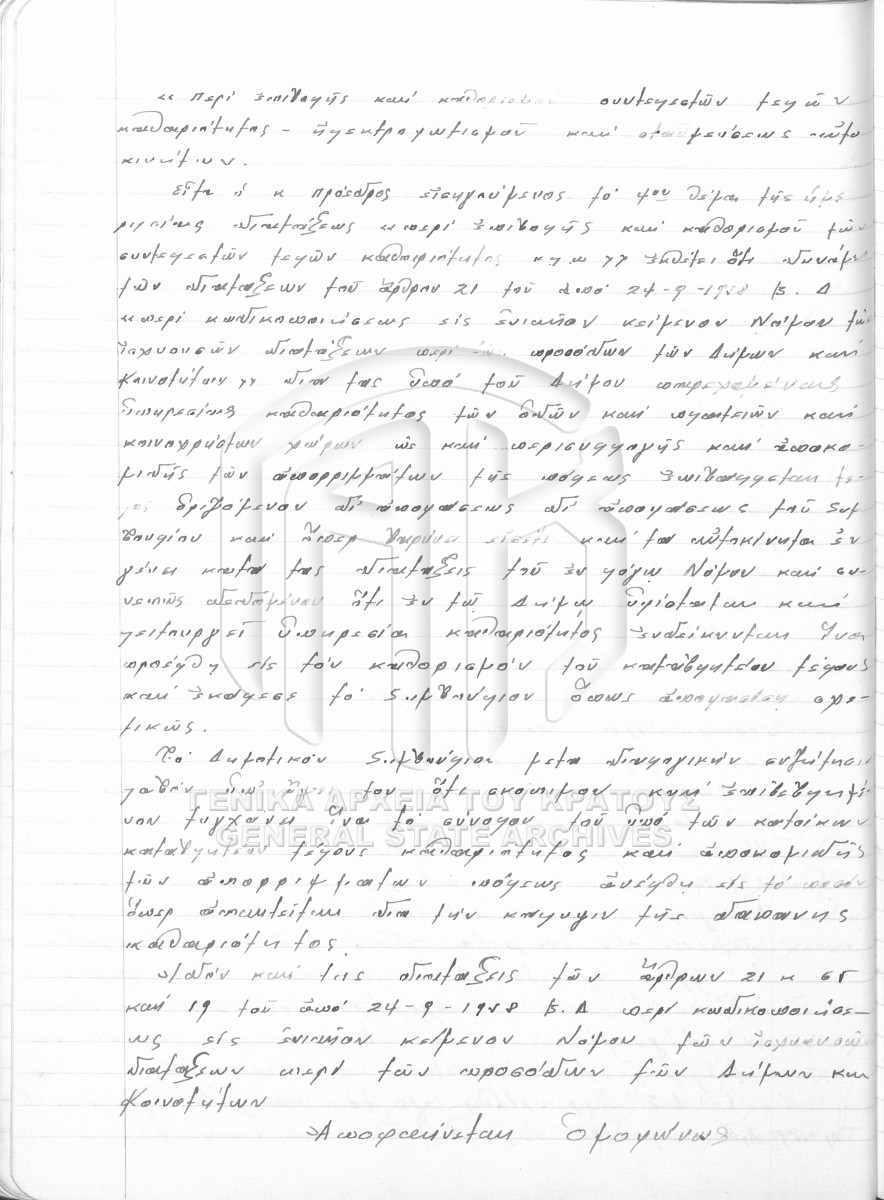 « Περί ἐπιβολῆς καί καθορισμοῦ συντελεστῶν τελῶν
καθαριότητος - ἠλεκτροφωτισμοῦ καί σταθμεύσεως αὐτο
κινήτων.
Εἶτα ὁ κ Πρόεδρος εἰσηγούμενος τό 4ον θέμα τῆς ἡμε
ρησίας διατάξεως « περί ἐπιβολῆς καί καθορισμοῦ τῶν
συντελεστῶν τελῶν καθαριότητος κ.λ.π » ἐκθέτει ὅτι δυνάμει
τῶν διατάξεων τοῦ ἄρθρου 21 τοῦ ἀπό 24-9-1958 Β. Δ
« περί κωδικοποιήσεως εἰς ἑνιαῖον κείμενον Νόμου τῶν
ἰσχυουσῶν διατάξεων περί τῶν προσόδων τῶν Δήμων καί
Κοινοτήτων » δια τας ὑπό τοῦ Δήμου παρεχομένας
ὑπηρεσίας καθαριότητος τῶν ὁδῶν καί πλατειῶν καί
κοινοχρήστων χώρων ὡς καί περισυλλογῆς καί ἀποκο-
μιδῆς τῶν ἀπορριμμάτων τῆς πόλεως ἐπιβάλλεται τέ-
λος ὁριζόμενον δι' ἀποφάσεως δι' ἀποφάσεως τοῦ Συμ
βουλίου καί ὅπερ βαρύνει εἰσέτι καί τα αὐτοκίνητα ἐν
γένει κατα τας διατάξεις τοῦ ἐν λόγω Νόμου καί συ-
νεπῶς δεδομένου ὅτι ἐν τῷ Δήμῳ ὑφίσταται καί
λειτουργεῖ ὑπηρεσία καθαριότητος ἐνδείκνυται ἵνα
προέλθη εἰς τόν καθορισμόν τοῦ καταβλητέου τέλους
καί ἐκάλεσε τό Συμβούλιον ὅπως ἀποφασίση σχε-
τικῶς.
Τό Δημοτικόν Συμβούλιον μετα διαλογικήν συζήτησιν
λαβόν ὑπ' ὄψει του ὅτι σκόπιμον καί ἐπιβεβλημέ
νον τυγχάνει ἵνα τό σύνολον τοῦ ὑπό τῶν κατοίκων
καταβλητέου τέλους καθαριότητος καί ἀποκομιδῆς
τῶν ἀπορριμμάτων πόλεως ἀνέλθη εἰς τό ποσόν
ὅπερ ἀπαιτεῖται δια τήν κάλυψιν τῆς δαπάνης
καθαριότητος.
Ἰδόν καί τας διατάξεις τῶν ἄρθρων 21 κ
καί 19 τοῦ ἀπό 24-9-1958 Β. Δ περί κωδικοποιήσε-
ως εἰς ἑνιαῖον κείμενον Νόμου τῶν ἰσχυουσῶν
διατάξεων περί τῶν προσόδων τῶν Δήμων και
Κοινοτήτων
Ἀποφαίνεται Ὁμοφώνως
ΓΕΝΙΚΑ ΑΡΧΕΙΑ ΤΟΥ ΚΡΑΤΟΥΣ
GENERAL STATE ARCHIVES